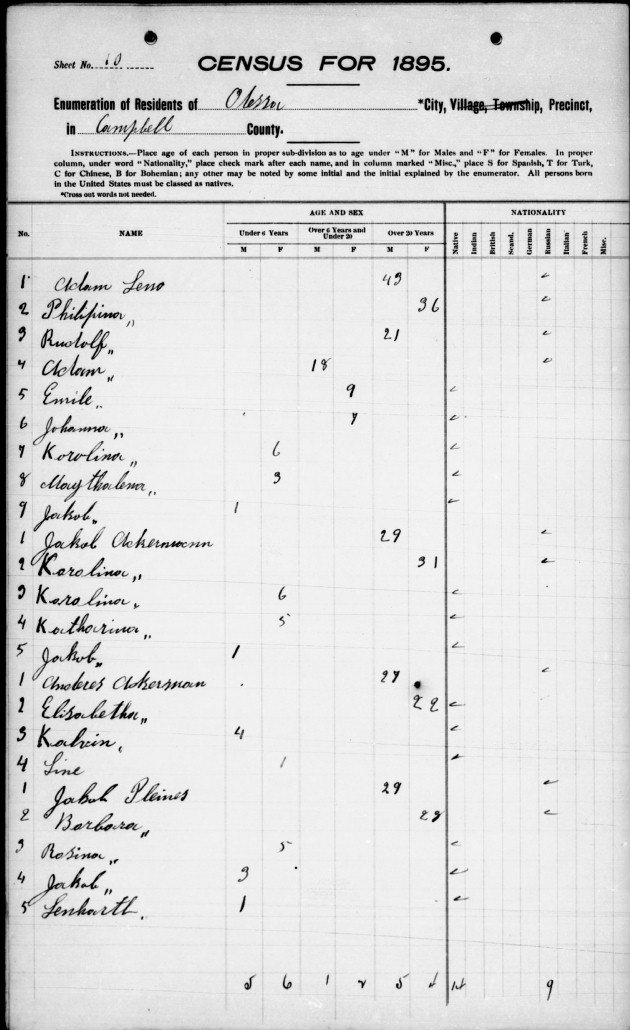 Sheet No. 10
CENSUS FOR 1895.
Enumeration of Residents of Odessa *City, Village, Township, Precinct,
in Campbell County.
INSTRUCTIONS.—Place age of each person in proper sub-division as to age under "M" for Males and "F" for Females. In proper
column, under word "Nationality," place check mark after each name, and in column marked "Misc.," place S for Spanish, T for Turk,
C for Chinese, B for Bohemian; any other may be noted by some initial and the initial explained by the enumerator. All persons born
in the United States must be classed as natives.
*Cross out words not needed.
AGE AND SEX NATIONALITY
No. NAME Under 6 Years Over 6 Years and Under 20 Over 20 Years Native Indian British Scand. German Russian Italian French Misc.
M F M F M F
1 Adam Leno 43 ✓
2 Philipina " 36 ✓
3 Rudolf " 21 ✓
4 Adam " 18 ✓
5 Emile " 9 ✓
6 Johanna " 7 ✓
7 Korolina " 6 ✓
8 Maythalena " 3 ✓
9 Jakob " 1 ✓
1 Jakob Ackermann 29 ✓
2 Karolina " 31 ✓
3 Karolina " 6 ✓
4 Katharina " 5 ✓
5 Jakob " 1 ✓
1 Anderes Ackerman 27 ✓
2 Elisabetha " 22 ✓
3 Kalvin " 4 ✓
4 Line 1 ✓
1 Jakob Pleines 29 ✓
2 Barbara " ✓
3 Rosina " 5 ✓
4 Jakob " 3 ✓
5 Lenharth " 1 ✓
5 6 1 2 5 4 14 9